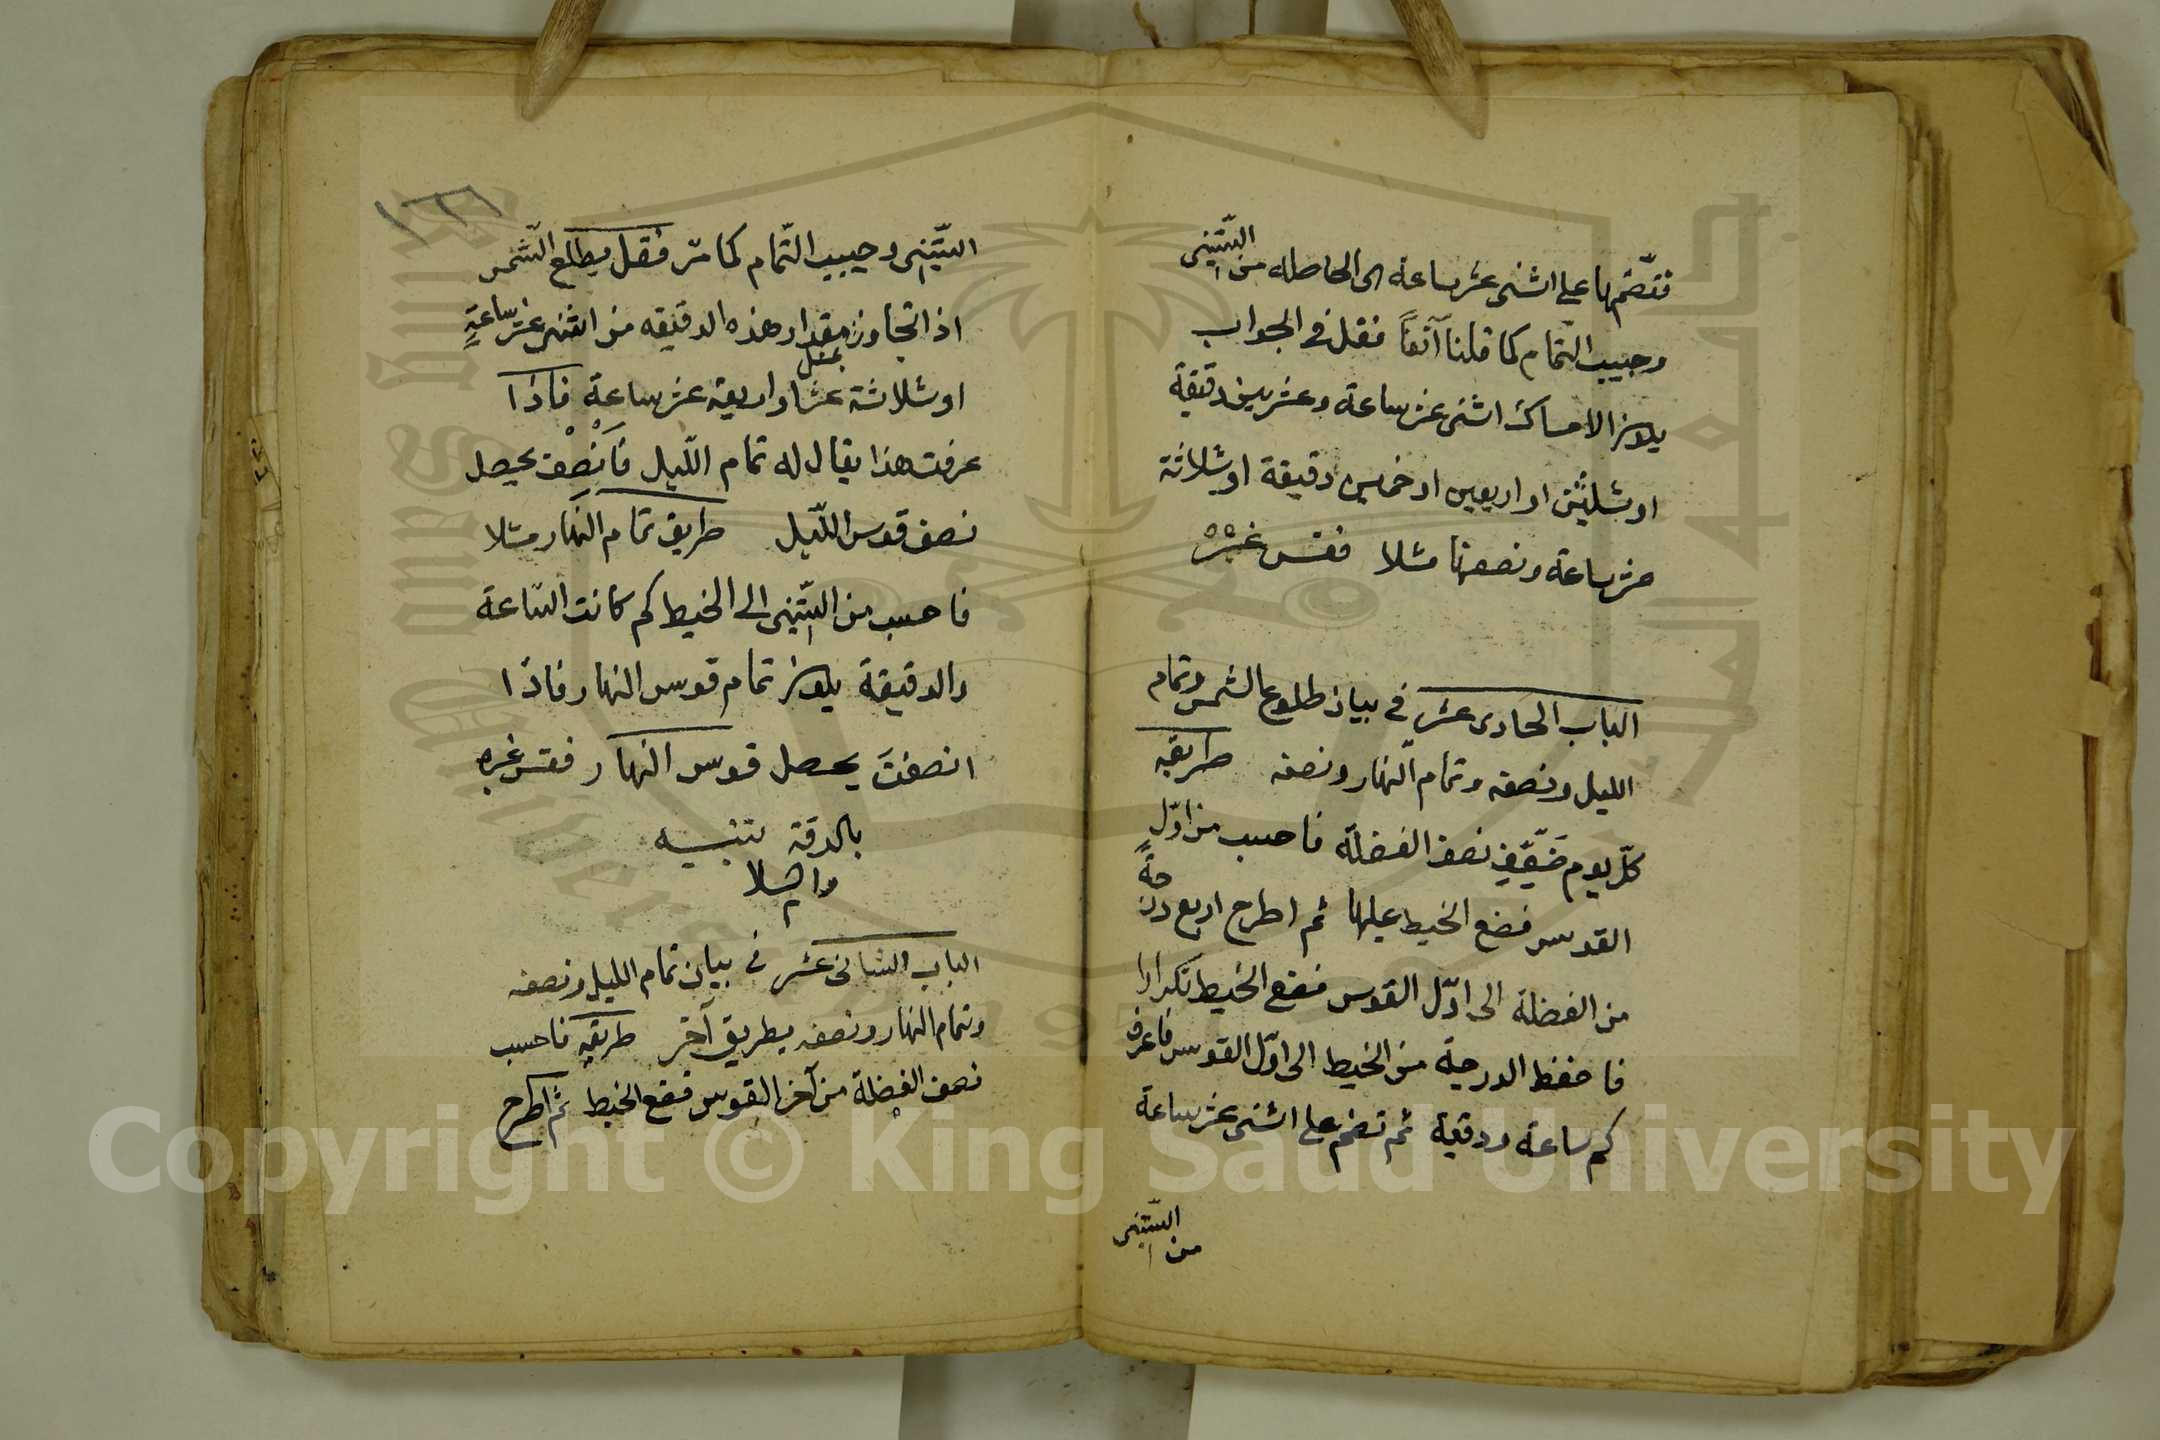 فتضمها على اثنى عشر ساعة الى الحاصله من الستينى
وجيب التمام كما قلنا آنفاً فقل فى الجواب
يكون الامساك اثنى عشر ساعة وعشرين دقيقة
او ثلثين او اربعين او خمسين دقيقة او ثلاثة
عشر ساعة ونصفها مثلا فقس غيره
الباب الحادى عشر فى بيان طلوع الشمس وتمام
الليل ونصفه وتمام النهار ونصفه طريقه
كل يوم ضَعِّف نصف الفضلة فاحسب من اوّل
القوس فضع الخيط عليها ثم اطرح اربع درجةً
من الفضلة الى اوّل القوس فضع الخيط تكرارا
فاحفظ الدرجة من الخيط الى اوّل القوس فاعرف
كم ساعة ودقيقة ثم تضم على اثنى عشر ساعة
من الستينى
١٢٦
الستينى وجيب التمام كما مرّ فقل يطلع الشمس
اذا تجاوز مقدار هذه الدقيقه من اثنى عشر ساعةٍ
او ثلاثة عشر او اربعة عشر ساعةٍ فاذا
عرفت هذا يقال له تمام الليل فَانْصِفْ يحصل
نصف قوس الليل طريق تمام النهار مثلا
فاحسب من الستينى الى الخيط كم كانت الساعة
والدقيقة يكون تمام قوس النهار فاذا
انصفتَ يحصل قوس النهار فقس غيره
بالدقة تنبيه
الباب الثانى عشر فى بيان تمام الليل ونصفه
وتمام النهار ونصفه بطريق آخر طريقه فاحسب
نصف الفضلة من آخر القوس فضع الخيط ثم اطرح
Copyright © King Saud University